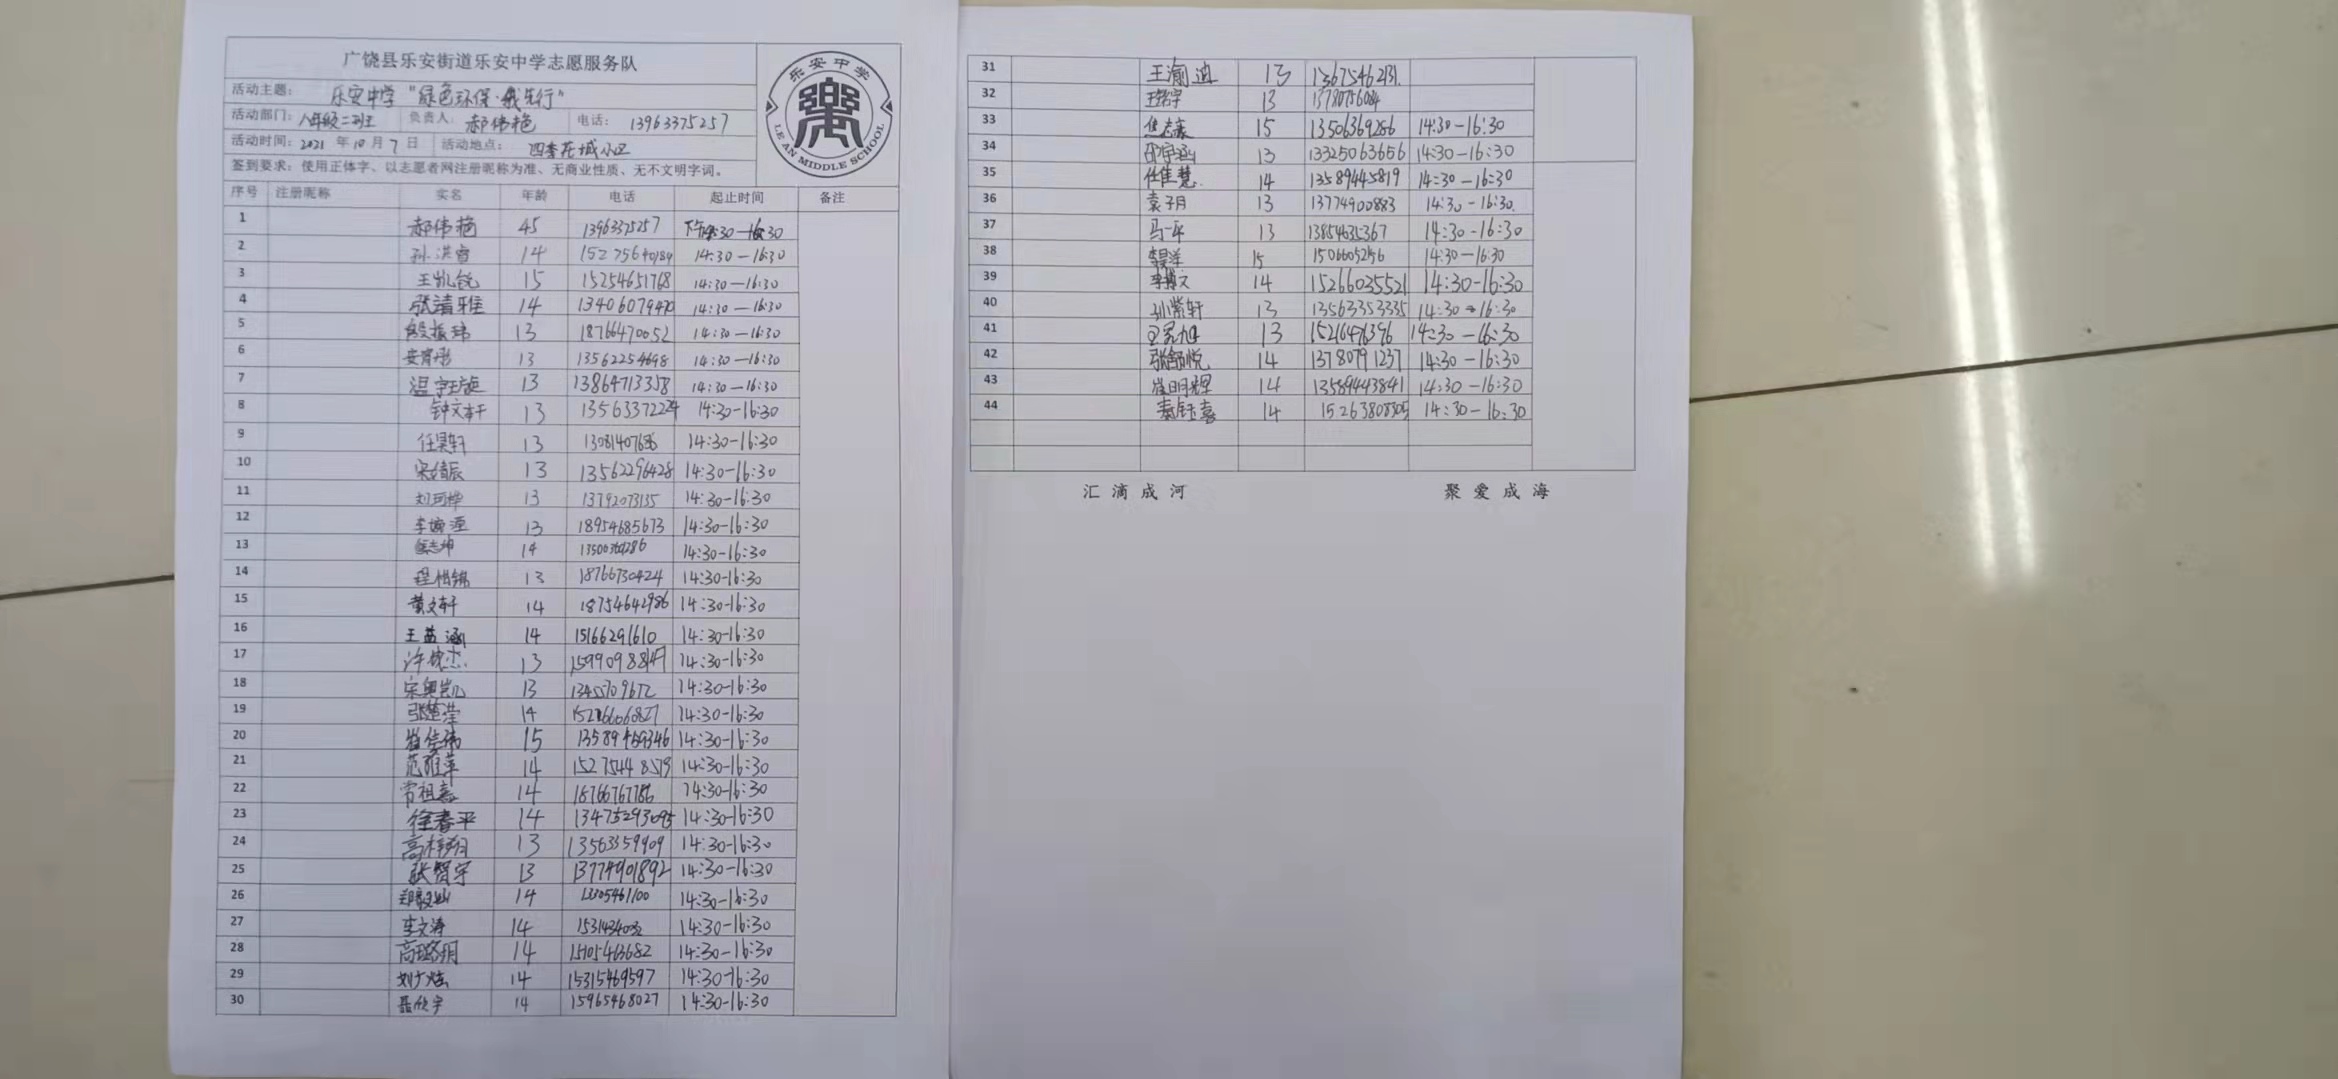 广饶县乐安街道乐安中学志愿服务队
乐安中学
LE AN MIDDLE SCHOOL
活动主题： 乐安中学"绿色环保·我先行"
活动部门：八年级二班 负责人：郝伟艳 电话：13963375257
活动时间：2021 年 10 月 7 日 活动地点： 四季花城小区
签到要求：使用正体字、以志愿者网注册昵称为准、无商业性质、无不文明字词。
序号 注册昵称 实名 年龄 电话 起止时间 备注
1 郝伟艳 45 13963375257
2 孙洪睿 14 14:30—16:30
3 王凯锐 15 15254651768 14:30—16:30
4 张靖雅 14 14:30—16:30
5 殷振玮 13 18766470052 14:30—16:30
6 13 13562254698 14:30—16:30
7 13 13864713358 14:30—16:30
8 钟文轩 13 14:30-16:30
9 任昊轩 13 13081407686 14:30-16:30
10 13 13562296428 14:30-16:30
11 13 13792073135 14:30-16:30
12 13 18954685673 14:30-16:30
13 14 14:30-16:30
14 13 18766730424 14:30-16:30
15 黄文轩 14 18754642986 14:30-16:30
16 14 15166291610 14:30-16:30
17 13 14:30-16:30
18 宋奥凯 13 14:30-16:30
19 张楚滢 14 14:30-16:30
20 15 13589459346 14:30-16:30
21 14 15275448579 14:30-16:30
22 常祖嘉 14 18766767786 14:30-16:30
23 徐春平 14 13475293095 14:30-16:30
24 13 13563359909 14:30-16:30
25 张智宇 13 13774901892 14:30-16:30
26 14 13305461100 14:30-16:30
27 李文涛 14 14:30-16:30
28 14 15105463682 14:30-16:30
29 14 15315469597 14:30-16:30
30 聂欣宇 14 15965468027 14:30-16:30
31 王渝迪 13 13675462131
32 王铭宇 13 13780756084
33 15 13506369286 14:30-16:30
34 邵宇涵 13 13325063656 14:30-16:30
35 任佳慧 14 13589445819 14:30-16:30
36 袁子月 13 13774900883 14:30-16:30
37 马一平 13 13854635367 14:30-16:30
38 15 14:30-16:30
39 李博文 14 15266035521 14:30-16:30
40 孙紫轩 13 13563353335 14:30-16:30
41 13 15216476396 14:30-16:30
42 张韶悦 14 13780791237 14:30-16:30
43 崔明辉 14 13589443841 14:30-16:30
44 秦钰嘉 14 15263808305 14:30-16:30
汇滴成河 聚爱成海